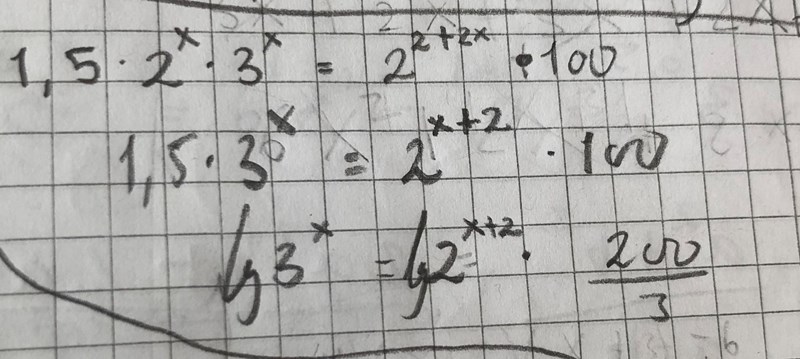 1,5 · 2^x · 3^x = 2^{2+2x} · 100
1,5 · 3^x = 2^{x+2} · 100
lg 3^x = lg 2^{x+2} · 200/3